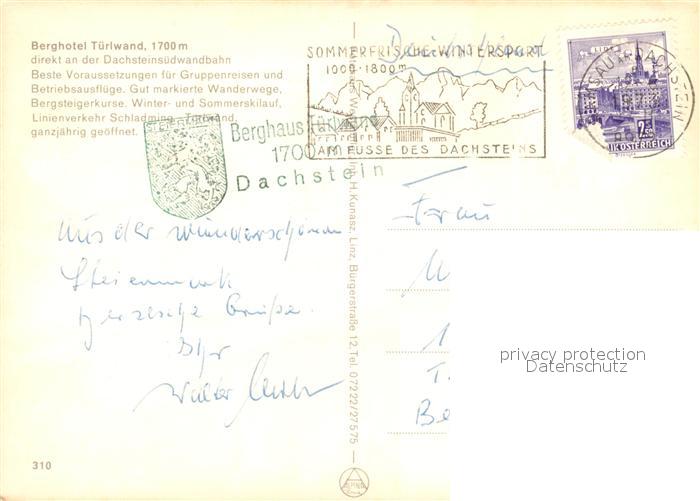 Berghotel Türlwand, 1700 m
direkt an der Dachsteinsüdwandbahn
Beste Voraussetzungen für Gruppenreisen und
Betriebsausflüge. Gut markierte Wanderwege,
Bergsteigerkurse. Winter- und Sommerskilauf,
Linienverkehr Schladming - Türlwand,
ganzjährig geöffnet.
STEIERMARK
Berghaus Türlwand
1700 m
Dachstein
SOMMERFRISCHE-WINTERSPORT
1000-1800 m
AM FUSSE DES DACHSTEINS
LINZ
2.50
REPUBLIK ÖSTERREICH
RAMSAU AM DACHSTEIN
Aus der wunderschönen
Steiermark
herzliche Grüße
Ihr
Walter
H. Kunasz, Linz, Bürgerstraße 12, Tel. 07222/27575
Frau
M
1
T.
Be
privacy protection
Datenschutz
310